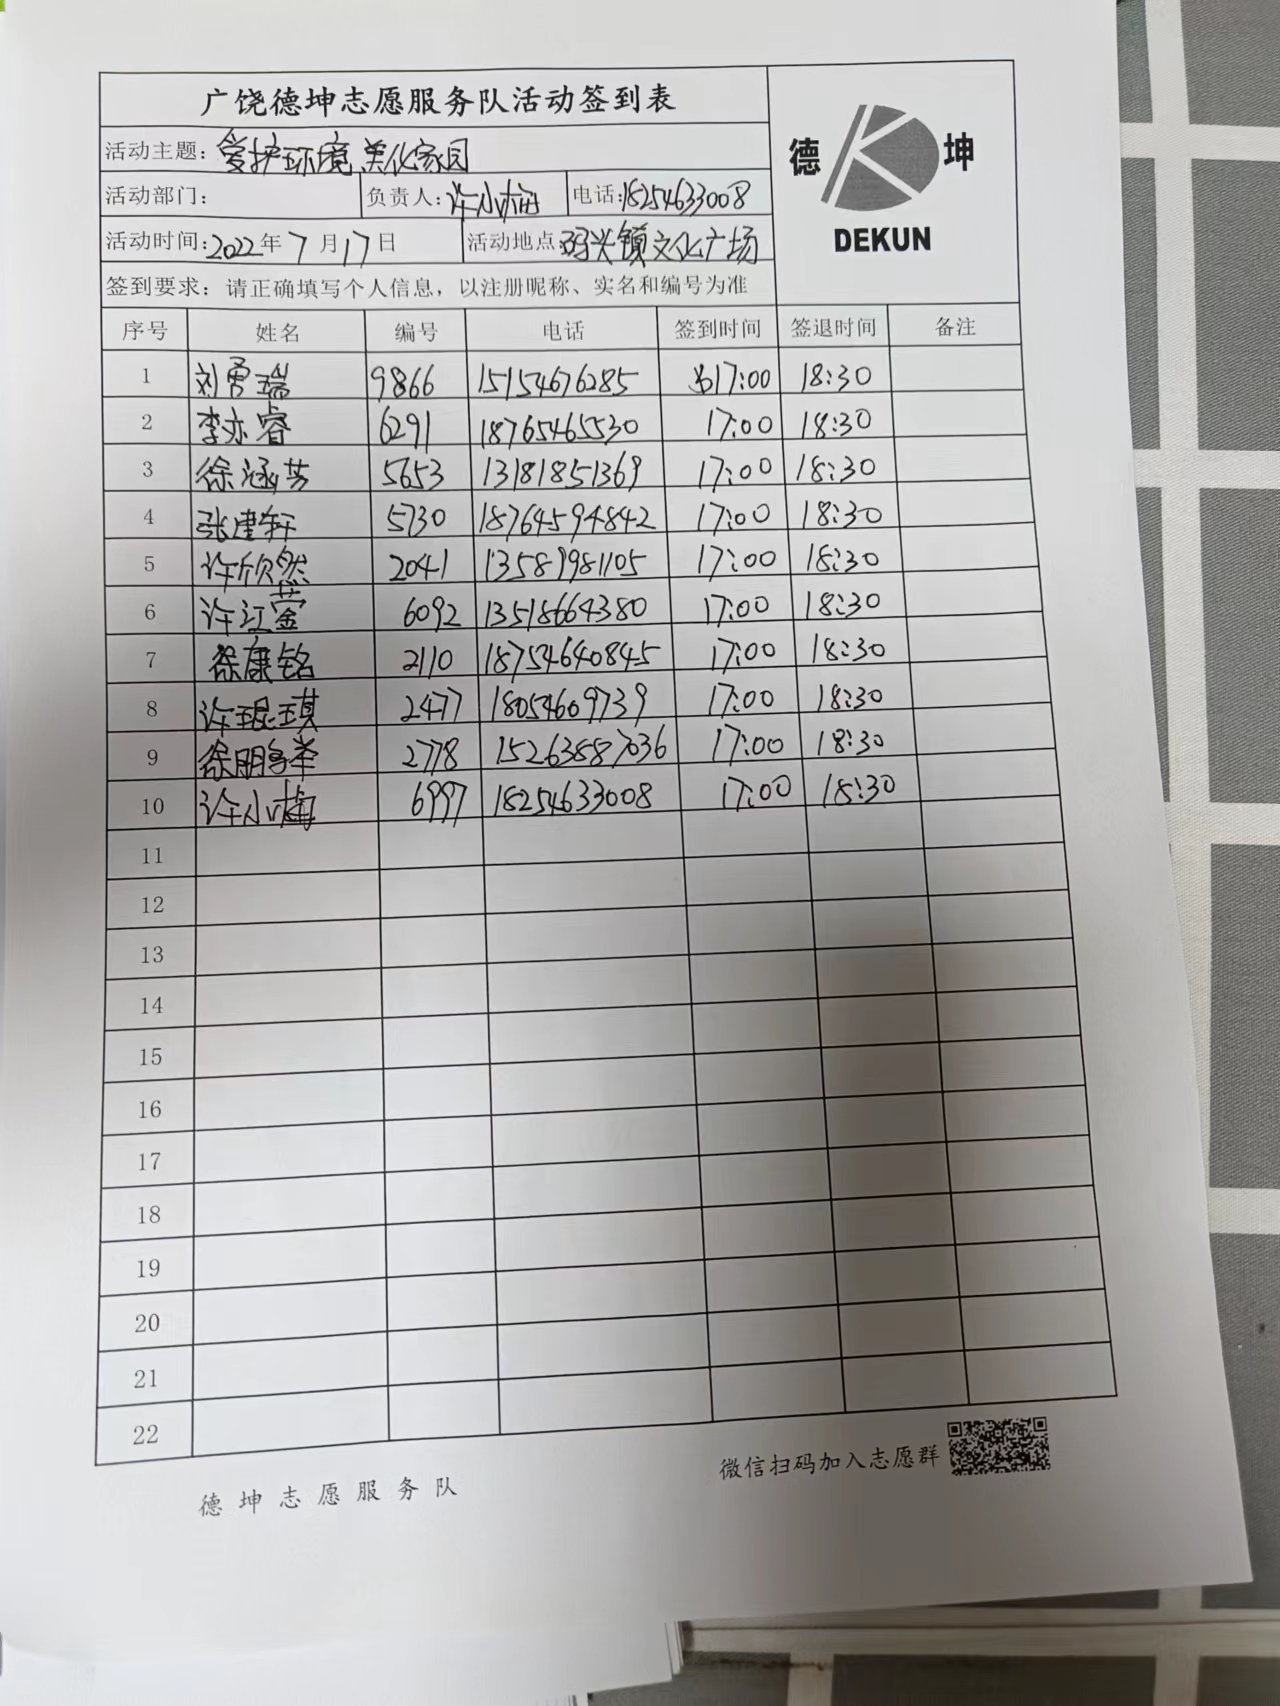 广饶德坤志愿服务队活动签到表
德 坤
DEKUN
活动主题：爱护环境 美化家园
活动部门： 负责人：许小梅 电话：18254633008
活动时间：2022年7月17日 活动地点：码头镇文化广场
签到要求：请正确填写个人信息，以注册昵称、实名和编号为准
序号 姓名 编号 电话 签到时间 签退时间 备注
1 刘勇瑞 9866 15154676285 17:00 18:30
2 李亦睿 6291 18765465530 17:00 18:30
3 徐涵芳 5653 13181851369 17:00 18:30
4 张建轩 5730 18764594842 17:00 18:30
5 许欣然 2041 13589981105 17:00 18:30
6 许江蓥 6092 13518664380 17:00 18:30
7 徐康铭 2110 18754640845 17:00 18:30
8 许琨琪 2477 18054609739 17:00 18:30
9 徐鹏举 2778 15263887036 17:00 18:30
10 许小梅 6997 18254633008 17:00 18:30
11
12
13
14
15
16
17
18
19
20
21
22
微信扫码加入志愿群
德坤志愿服务队